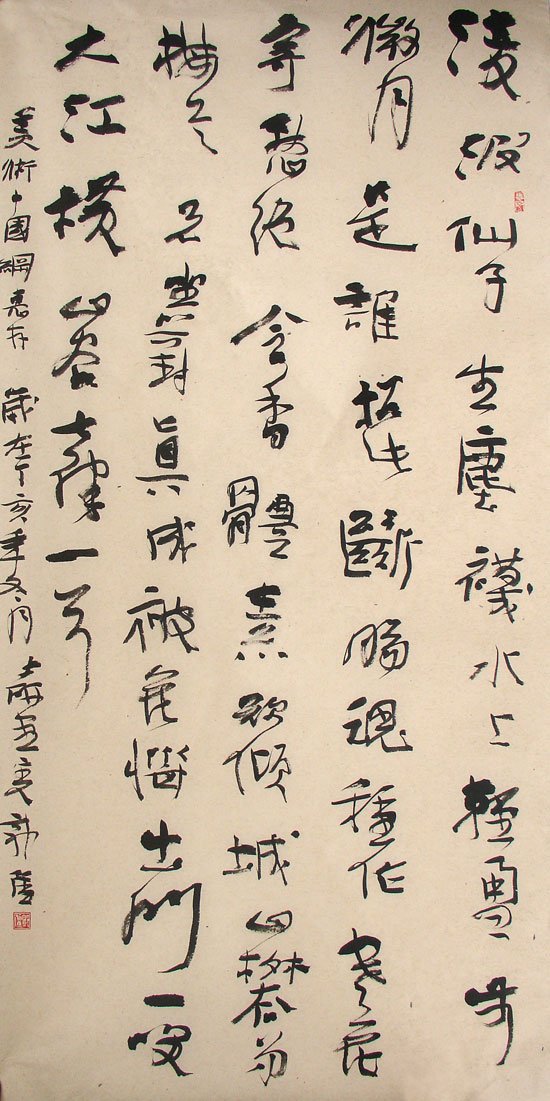 凌波仙子生塵襪水上輕盈步
微月是誰招此斷腸魂種作寒花
寄愁絕含香體素欲傾城山礬弟
梅是兄坐對真成被花惱出門一笑
大江橫 山谷七律一首
美術中國網惠存 歲在丁亥年冬月